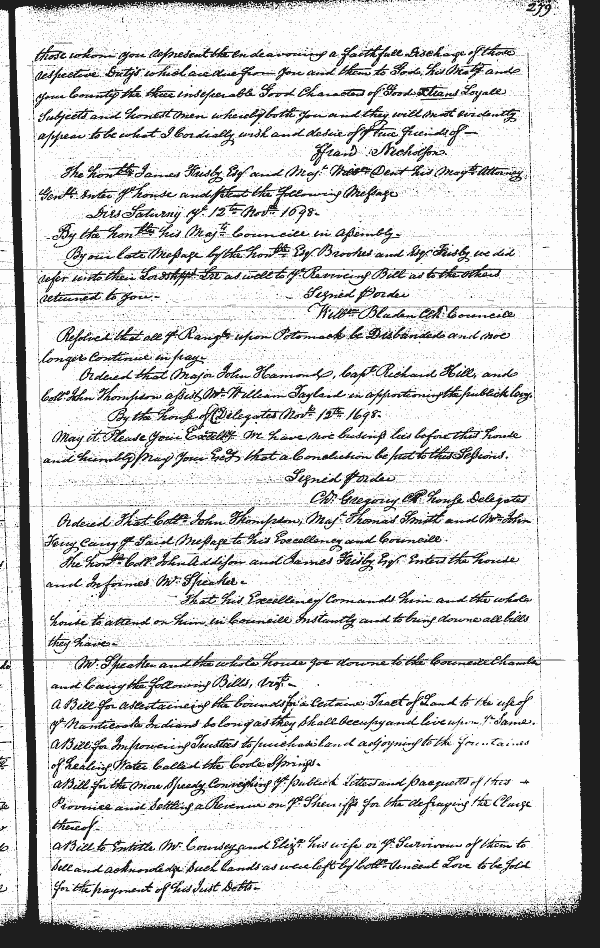 279
those whom you represent the endeavouring a faithfull discharge of those
respective Dutys which are due from you and them to God, his Maty and
your County the three inseperable Good Characters of Good Xtians Loyall
Subjects and honest men whereby both you and they will most evidently
appear to be what I Cordially wish and desire of true friends of —
ffran: Nicholson
The honble James Frisby Esqr and Majr Wm Dent his Majts Attorney
Genll. enter ye house and prsent the following Message
Dies Saturny ye 12th Novr 1698.
By the honble his Majts Councile in Assembly.
By our late Message by the honble Esqr Brookes and Esqr Frisby we did
refer unto their as well to ye Reviveing Bill as to the others
returned to you. Signed p order
Willm Bladen Clk. Councill
Resolved that all ye Rangrs upon Potomack be Disbanded and not
longer Continue in pay.
Ordered that Major John Hamond, Capt Richard Hill, and
Collo John Thompson assist Mr William Tayland in apportioning the publick levy.
By the house of Delegates Novr 12th 1698.
May it Please Your Excelly We have noe business lies before this house
and humbly pray Your Excy that a Conclusion be put to this Sessions.
Signed p order
Chr Gregory Clk house Delegates
Ordered That Collo John Thompson, Majr Thomas Smith and Mr John
Ferry Carry ye Said Message to his Excellency and Councill.
The honble Collo John Addison and James Frisby Esqr Enters the house
and Informes Mr Speaker.
That his Excellency Comands him and the whole
house to attend on him in Councill Instantly and to bring downe all bills
they have.
Mr Speaker and the whole house goe downe to the Councill Chamber
and Carry the following Bills, vizt.
A Bill for ascertaineing the bounds for a Certaine Tract of Land to the use of
ye Nanticoke Indians so long as they Shall Occupy and live upon ye Same.
A Bill for Impowering Trustees to purchase land adjoyning to the fountaines
of healing Water Called the Coole Springs.
A Bill for the more Speedy Conveighing ye publick letters and pacquetts of this
Province and Settling a Revenue on ye Sheriffs for the defraying the Charge
thereof.
A Bill to Entitle Mr Coursey and Elizth his wife or ye Survivour of them to
Sell and acknowledge Such lands as were left by Collo Vincent Lowe to be Sold
for the payment of his Just Debts.